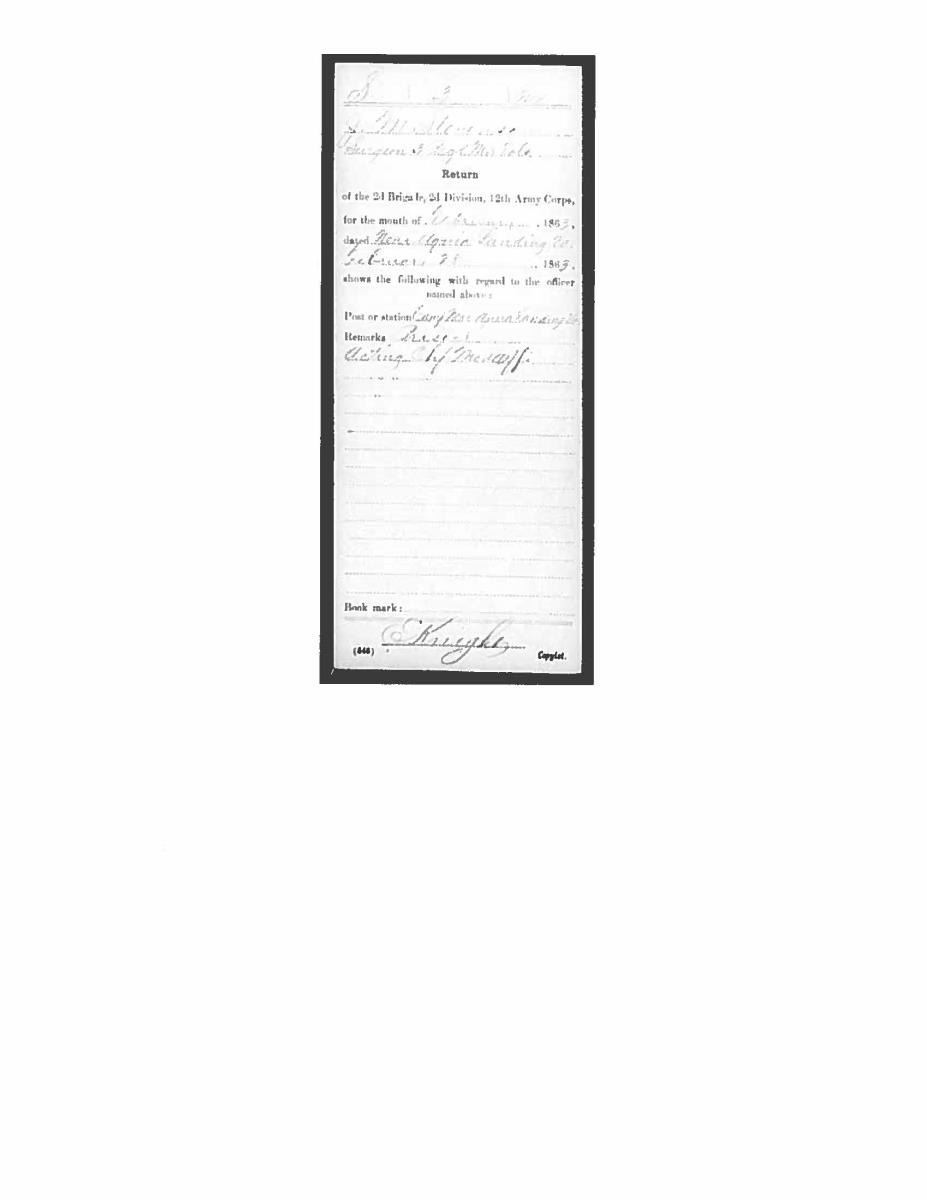 S 3 Md
Surgeon 3 Regt Md Vols.
Return
of the 2d Brigade, 2d Division, 12th Army Corps,
for the month of February, 1863.
dated Near Aquia Landing Va.
February 28, 1863.
shows the following with regard to the officer
named above:
Post or station Camp Near Aquia Landing Va.
Remarks Present
Acting Med. Off.
Book mark:
Knight
(646) Copyist.